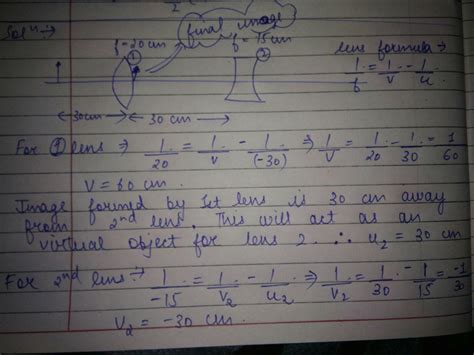 Solⁿ:→
final image
f=20cm
f=15cm
①
②
lens formula →
1/f = 1/v - 1/u
1
←30cm→← 30 cm →
For ① lens ⇒ 1/20 = 1/v - 1/(-30) ⇒ 1/v = 1/20 - 1/30 = 1/60
v = 60 cm.
Image formed by 1st lens is 30 cm away
from 2nd lens. This will act as an
virtual object for lens 2. ∴ u₂ = 30 cm
For 2nd lens:→ 1/-15 = 1/v₂ - 1/u₂ ⇒ 1/v₂ = 1/30 - 1/15 = -1/30
v₂ = -30 cm.